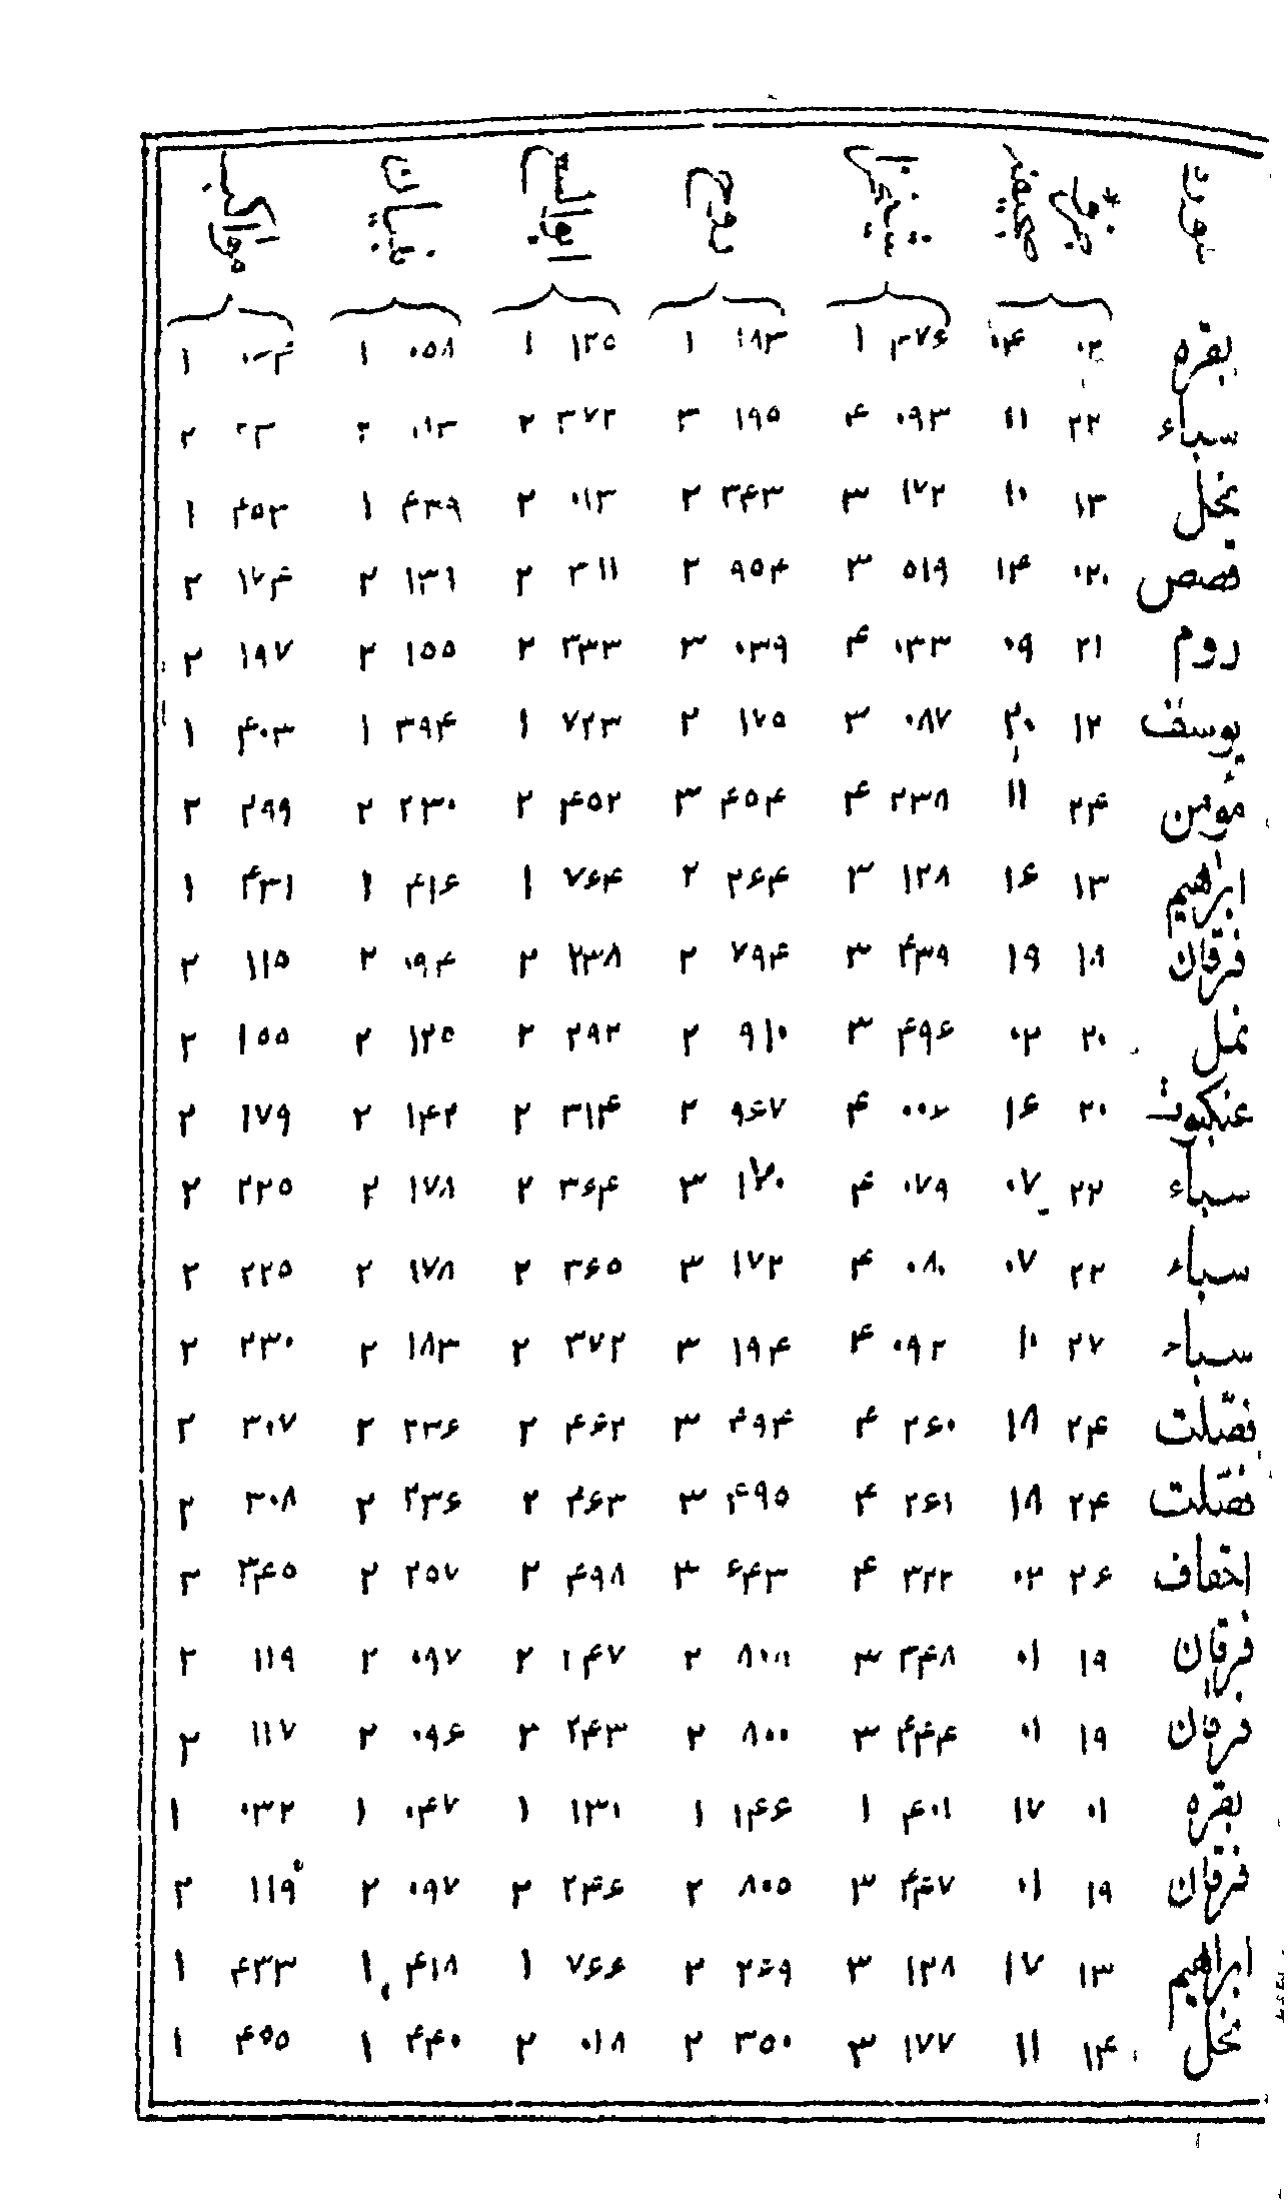 سوره جزؤ صحیفه شیخزاده روح ابوالسعود تبیان مواکب
بقره ۰۲ ۰۴ ۳۷۶ ۱ ۱۸۳ ۱ ۱۲۵ ۱ ۰۵۸ ۱ ۱
سباء ۲۲ ۱۱ ۰۹۳ ۴ ۱۹۵ ۳ ۳۷۲ ۲ ۲ ۲
نحل ۱۳ ۱۰ ۱۷۲ ۳ ۳۴۳ ۲ ۰۱۳ ۲ ۴۳۹ ۱ ۴۵۳ ۱
قصص ۲۰ ۱۴ ۵۱۹ ۳ ۹۵۴ ۲ ۳۱۱ ۲ ۱۳۱ ۲ ۱۷۴ ۲
روم ۲۱ ۰۹ ۰۳۳ ۴ ۰۳۹ ۳ ۳۳۳ ۲ ۱۵۵ ۲ ۱۹۷ ۲
یوسف ۱۲ ۲۰ ۰۸۷ ۳ ۱۷۵ ۲ ۷۲۳ ۱ ۳۹۴ ۱ ۴۰۳ ۱
مؤمن ۲۴ ۱۱ ۲۳۸ ۴ ۴۵۴ ۳ ۴۵۲ ۲ ۲۳۰ ۲ ۲۹۹ ۲
ابراهیم ۱۳ ۱۶ ۱۲۸ ۳ ۲۶۴ ۲ ۷۶۴ ۱ ۴۱۶ ۱ ۴۳۱ ۱
فرقان ۱۸ ۱۹ ۴۳۹ ۳ ۷۹۴ ۲ ۲۳۸ ۲ ۰۹۴ ۲ ۱۱۵ ۲
نمل ۲۰ ۰۲ ۴۹۶ ۳ ۹۱۰ ۲ ۲۹۲ ۲ ۱۲۵ ۲ ۱۵۵ ۲
عنکبوت ۲۰ ۱۶ ۰۰۶ ۴ ۹۶۷ ۲ ۳۱۴ ۲ ۱۴۲ ۲ ۱۷۹ ۲
سباء ۲۲ ۰۷ ۰۷۹ ۴ ۱۷۰ ۳ ۳۶۴ ۲ ۱۷۸ ۲ ۲۲۵ ۲
سباء ۲۲ ۰۷ ۰۸۰ ۴ ۱۷۲ ۳ ۳۶۵ ۲ ۱۷۸ ۲ ۲۲۵ ۲
سباء ۲۷ ۱۰ ۰۹۲ ۴ ۱۹۴ ۳ ۳۷۲ ۲ ۱۸۳ ۲ ۲۳۰ ۲
فصّلت ۲۴ ۱۸ ۲۶۰ ۴ ۴۹۴ ۳ ۴۶۲ ۲ ۲۳۶ ۲ ۳۰۷ ۲
فصّلت ۲۴ ۱۸ ۲۶۱ ۴ ۴۹۵ ۳ ۴۶۳ ۲ ۲۳۶ ۲ ۳۰۸ ۲
احقاف ۲۶ ۰۲ ۳۲۲ ۴ ۶۴۳ ۳ ۴۹۸ ۲ ۲۵۷ ۲ ۳۴۵ ۲
فرقان ۱۹ ۰۱ ۴۴۸ ۳ ۸۰۸ ۲ ۲۴۷ ۲ ۰۹۷ ۲ ۱۱۹ ۲
فرقان ۱۹ ۰۱ ۴۴۴ ۳ ۸۰۰ ۲ ۲۴۳ ۲ ۰۹۶ ۲ ۱۱۷ ۲
بقره ۰۱ ۱۷ ۴۰۱ ۱ ۱۴۶ ۱ ۱۳۰ ۱ ۰۴۷ ۱ ۰۳۲ ۱
فرقان ۱۹ ۰۱ ۴۴۷ ۳ ۸۰۵ ۲ ۲۴۶ ۲ ۰۹۷ ۲ ۱۱۹ ۲
ابراهیم ۱۳ ۱۷ ۱۲۸ ۳ ۲۶۹ ۲ ۷۶۶ ۱ ۴۱۸ ۱ ۴۳۳ ۱
نحل ۱۴ ۱۱ ۱۷۷ ۳ ۳۵۰ ۲ ۰۱۸ ۲ ۴۴۰ ۱ ۴۵۵ ۱